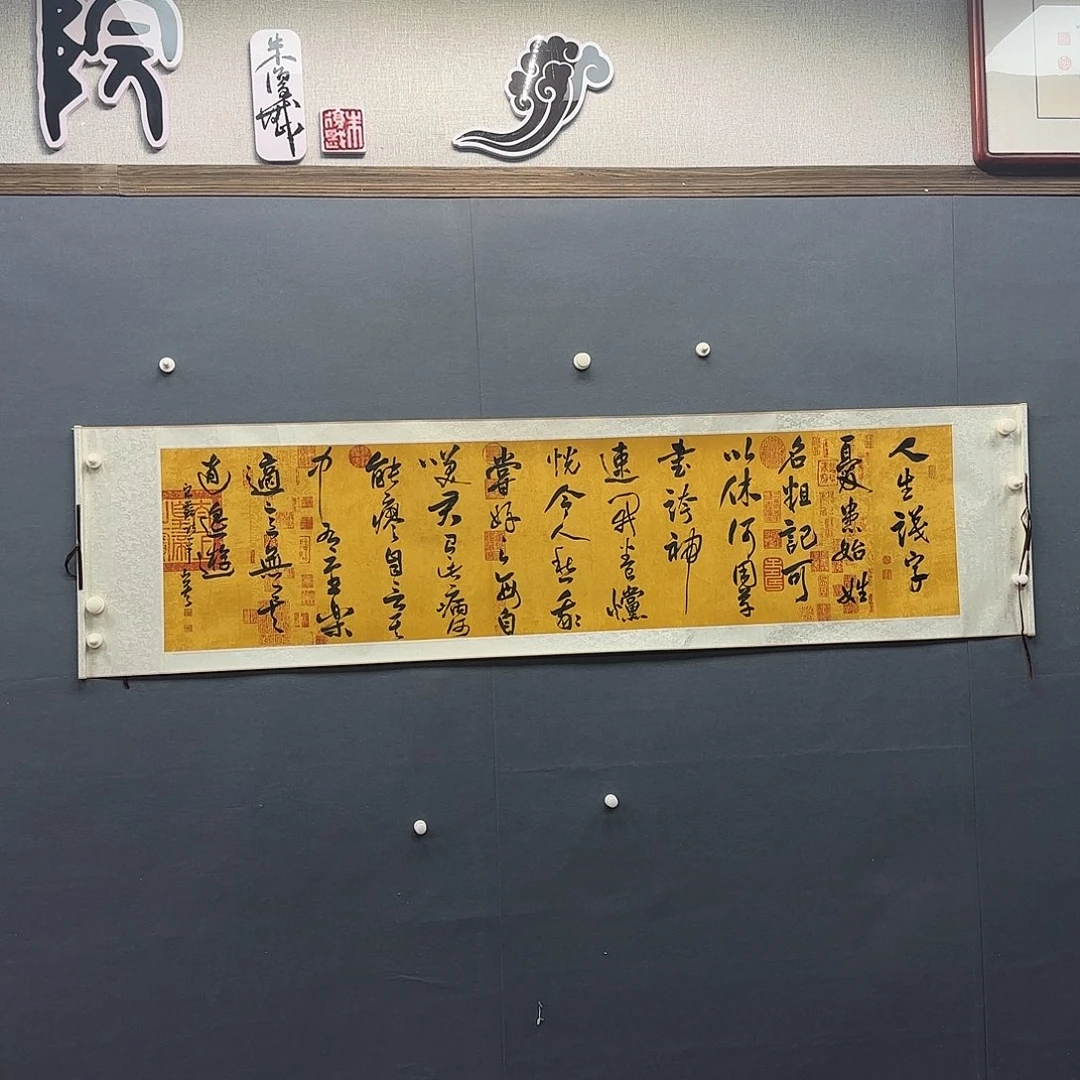 院
人生識字
憂患始姓
名粗記可
以休何用草
書誇神
速開卷戃
怳令人愁我
嘗好之每自
笑君有此病何
能瘳自言其
中有至樂
適意無異
逍遙遊